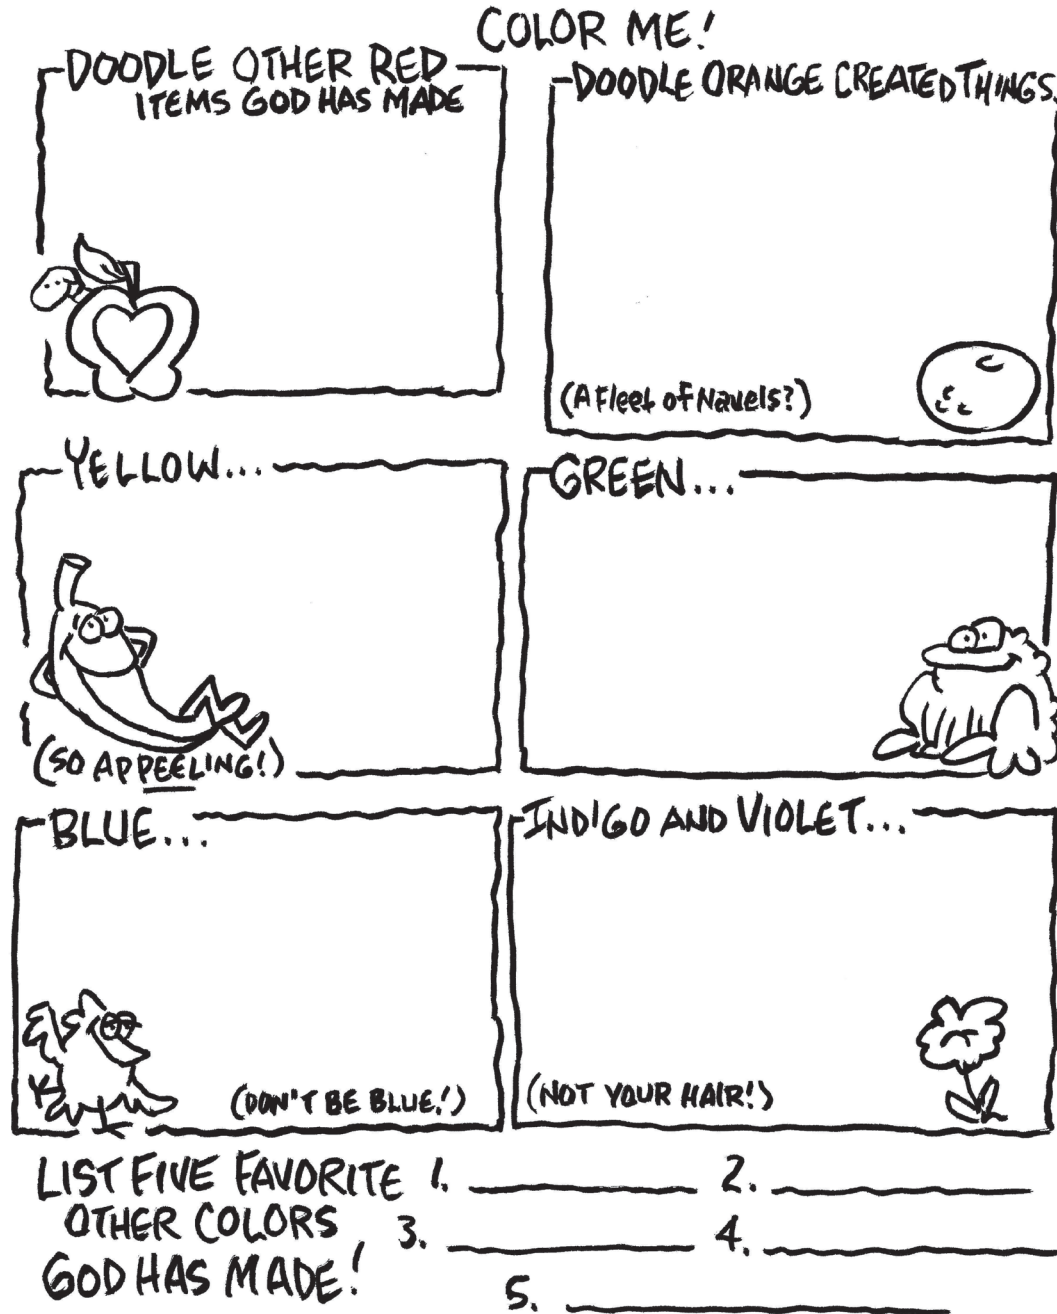 COLOR ME!
DOODLE OTHER RED
ITEMS GOD HAS MADE
DOODLE ORANGE CREATED THINGS.
(A Fleet of Navels?)
YELLOW...
(SO APPEELING!)
GREEN...
BLUE...
(DON'T BE BLUE!)
INDIGO AND VIOLET...
(NOT YOUR HAIR!)
LIST FIVE FAVORITE
OTHER COLORS
GOD HAS MADE!
1. 2.
3. 4.
5.